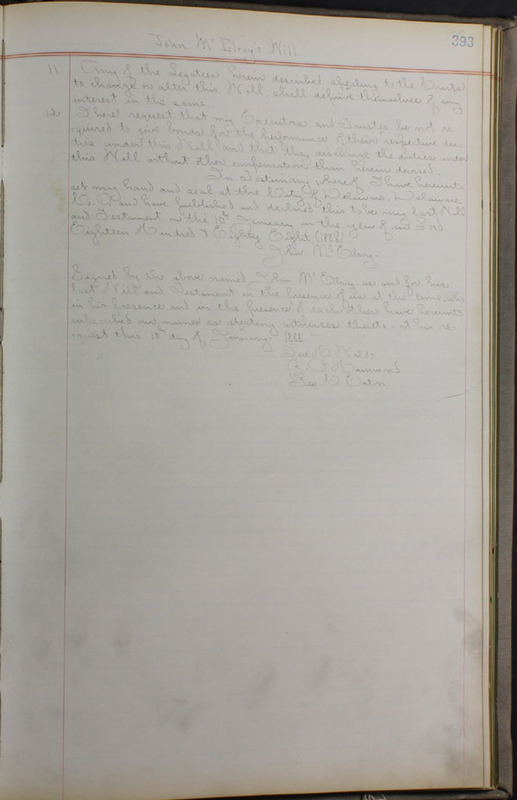 393
John McElroy's Will
11 Any of the Legatees herein described applying to the Courts
to change or alter this Will, shall deprive themselves of any
interest in the same.
12 I here request that my Executors and Trustees be not re
quired to give bonds for the performance of their respective du
ties under this Will and that they discharge the duties under
this Will without other compensation than herein devised.
In Testimony whereof I have hereunto
set my hand and seal at the City of Delaware, Delaware
Co. Ohio have published and declared this to be my last Will
and Testament on this 10th January in the year of our Lord
Eighteen Hundred & Eighty Eight (1888)
John McElroy.
Signed by the above named John McElroy as and for his
last Will and Testament in the presence of us at the time, who
in his presence and in the presence of each other have hereunto
subscribed our names as attesting witnesses thereto at his re
quest this 10th day of January 1888.
Hammond
Geo. Eaton